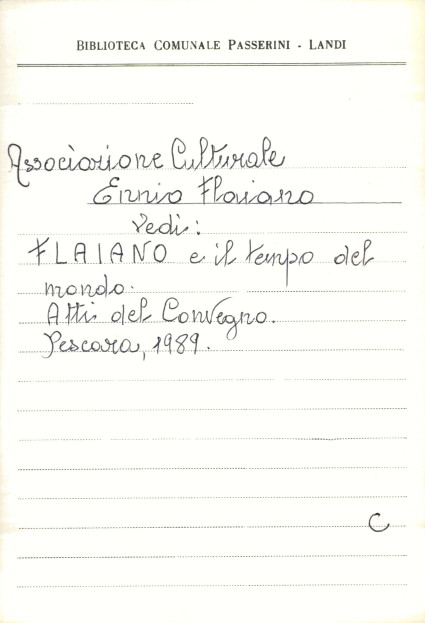 BIBLIOTECA COMUNALE PASSERINI - LANDI
Associazione Culturale
Ennio Flaiano
Vedi:
FLAIANO e il tempo del
mondo.
Atti del Convegno.
Pescara, 1989.
C